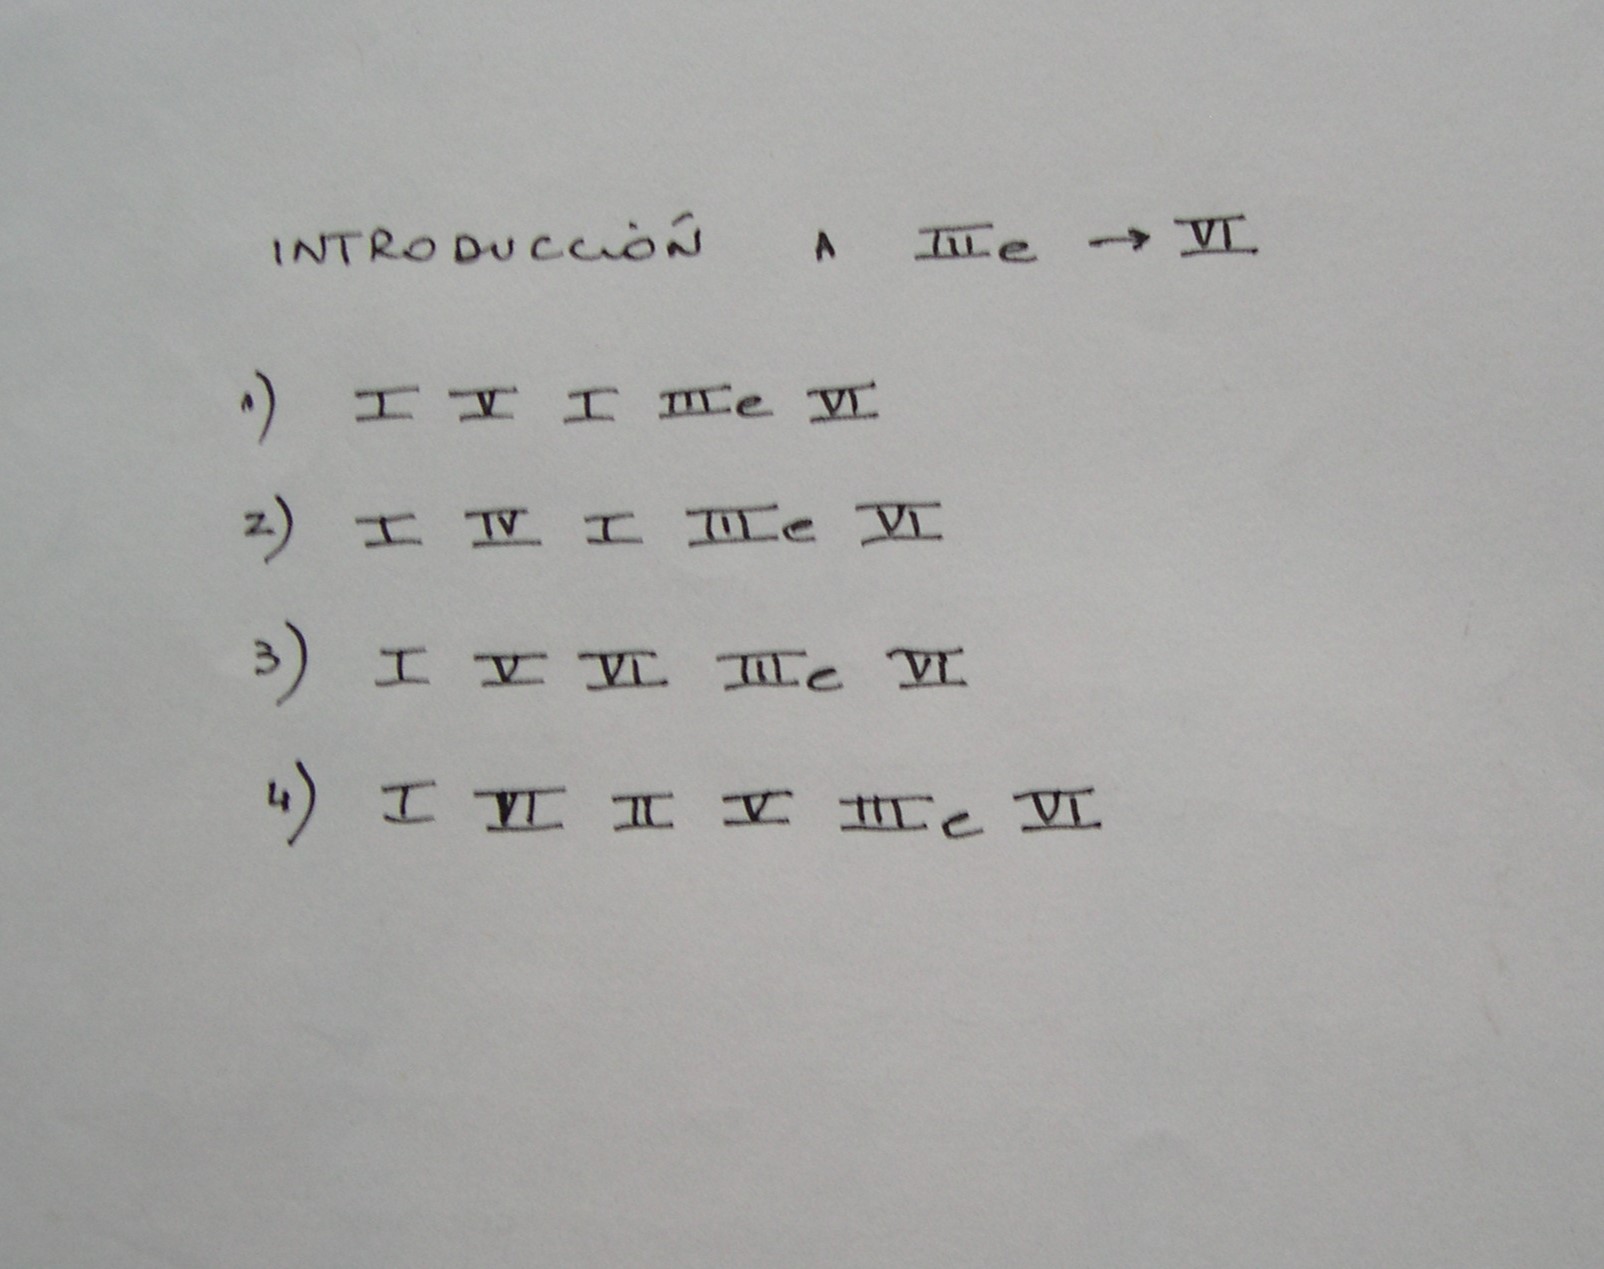 INTRODUCCIÓN A IIIe → VI
1) I V I IIIe VI
2) I IV I IIIe VI
3) I V VI IIIe VI
4) I VI II V IIIe VI